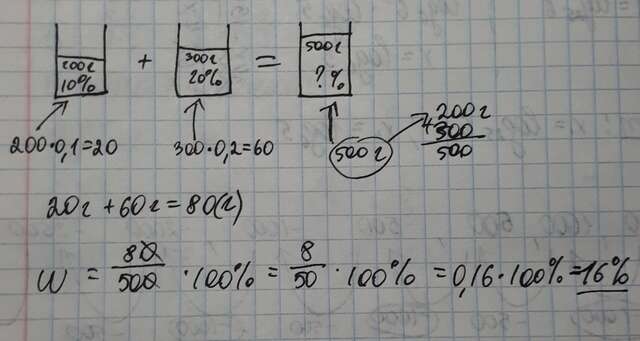 200г + 300г = 500г
10% 20% ?%
200·0,1=20 300·0,2=60 500 г
200г
+300
500
20г + 60г = 80(г)
W = 80/500 · 100% = 8/50 · 100% = 0,16·100% = 16%